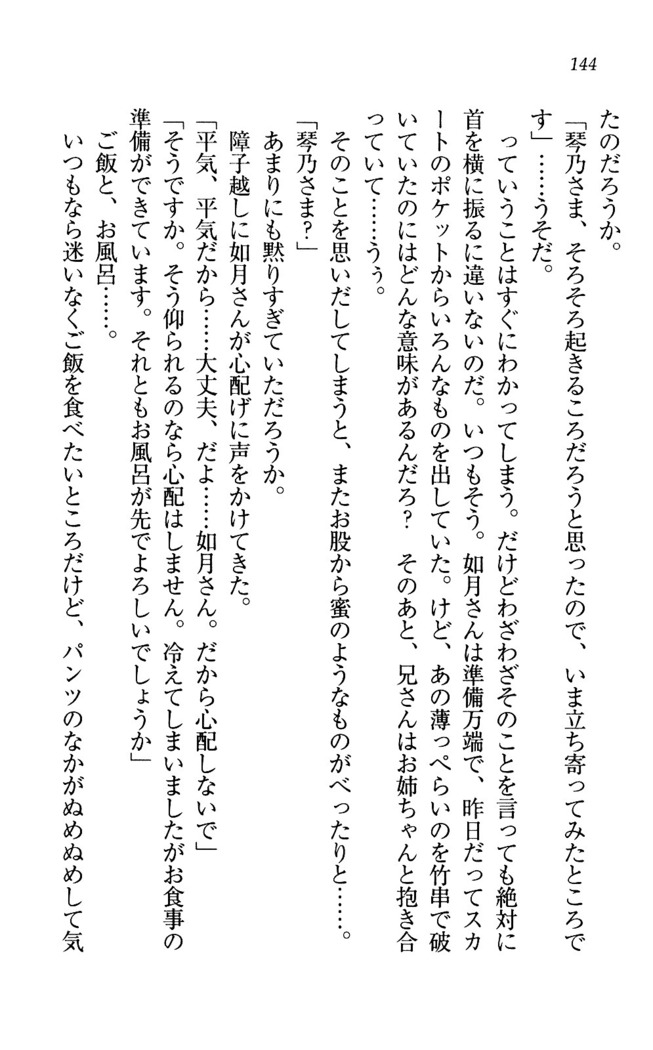 144
たのだろうか。
「琴乃さま、そろそろ起きるころだろうと思ったので、いま立ち寄ってみたところで
す」……うそだ。
っていうことはすぐにわかってしまう。だけどわざわざそのことを言っても絶対に
首を横に振るに違いないのだ。いつもそう。如月さんは準備万端で、昨日だってスカ
ートのポケットからいろんなものを出していた。けど、あの薄っぺらいのを竹串で破
いていたのにはどんな意味があるんだろ？　そのあと、兄さんはお姉ちゃんと抱き合
っていて……うぅ。
そのことを思いだしてしまうと、またお股から蜜のようなものがべったりと……。
「琴乃さま？」
あまりにも黙りすぎていただろうか。
障子越しに如月さんが心配げに声をかけてきた。
「平気、平気だから……大丈夫、だよ……如月さん。だから心配しないで」
「そうですか。そう仰られるのなら心配はしません。冷えてしまいましたがお食事の
準備ができています。それともお風呂が先でよろしいでしょうか」
ご飯と、お風呂……。
いつもなら迷いなくご飯を食べたいところだけど、パンツのなかがぬめぬめして気